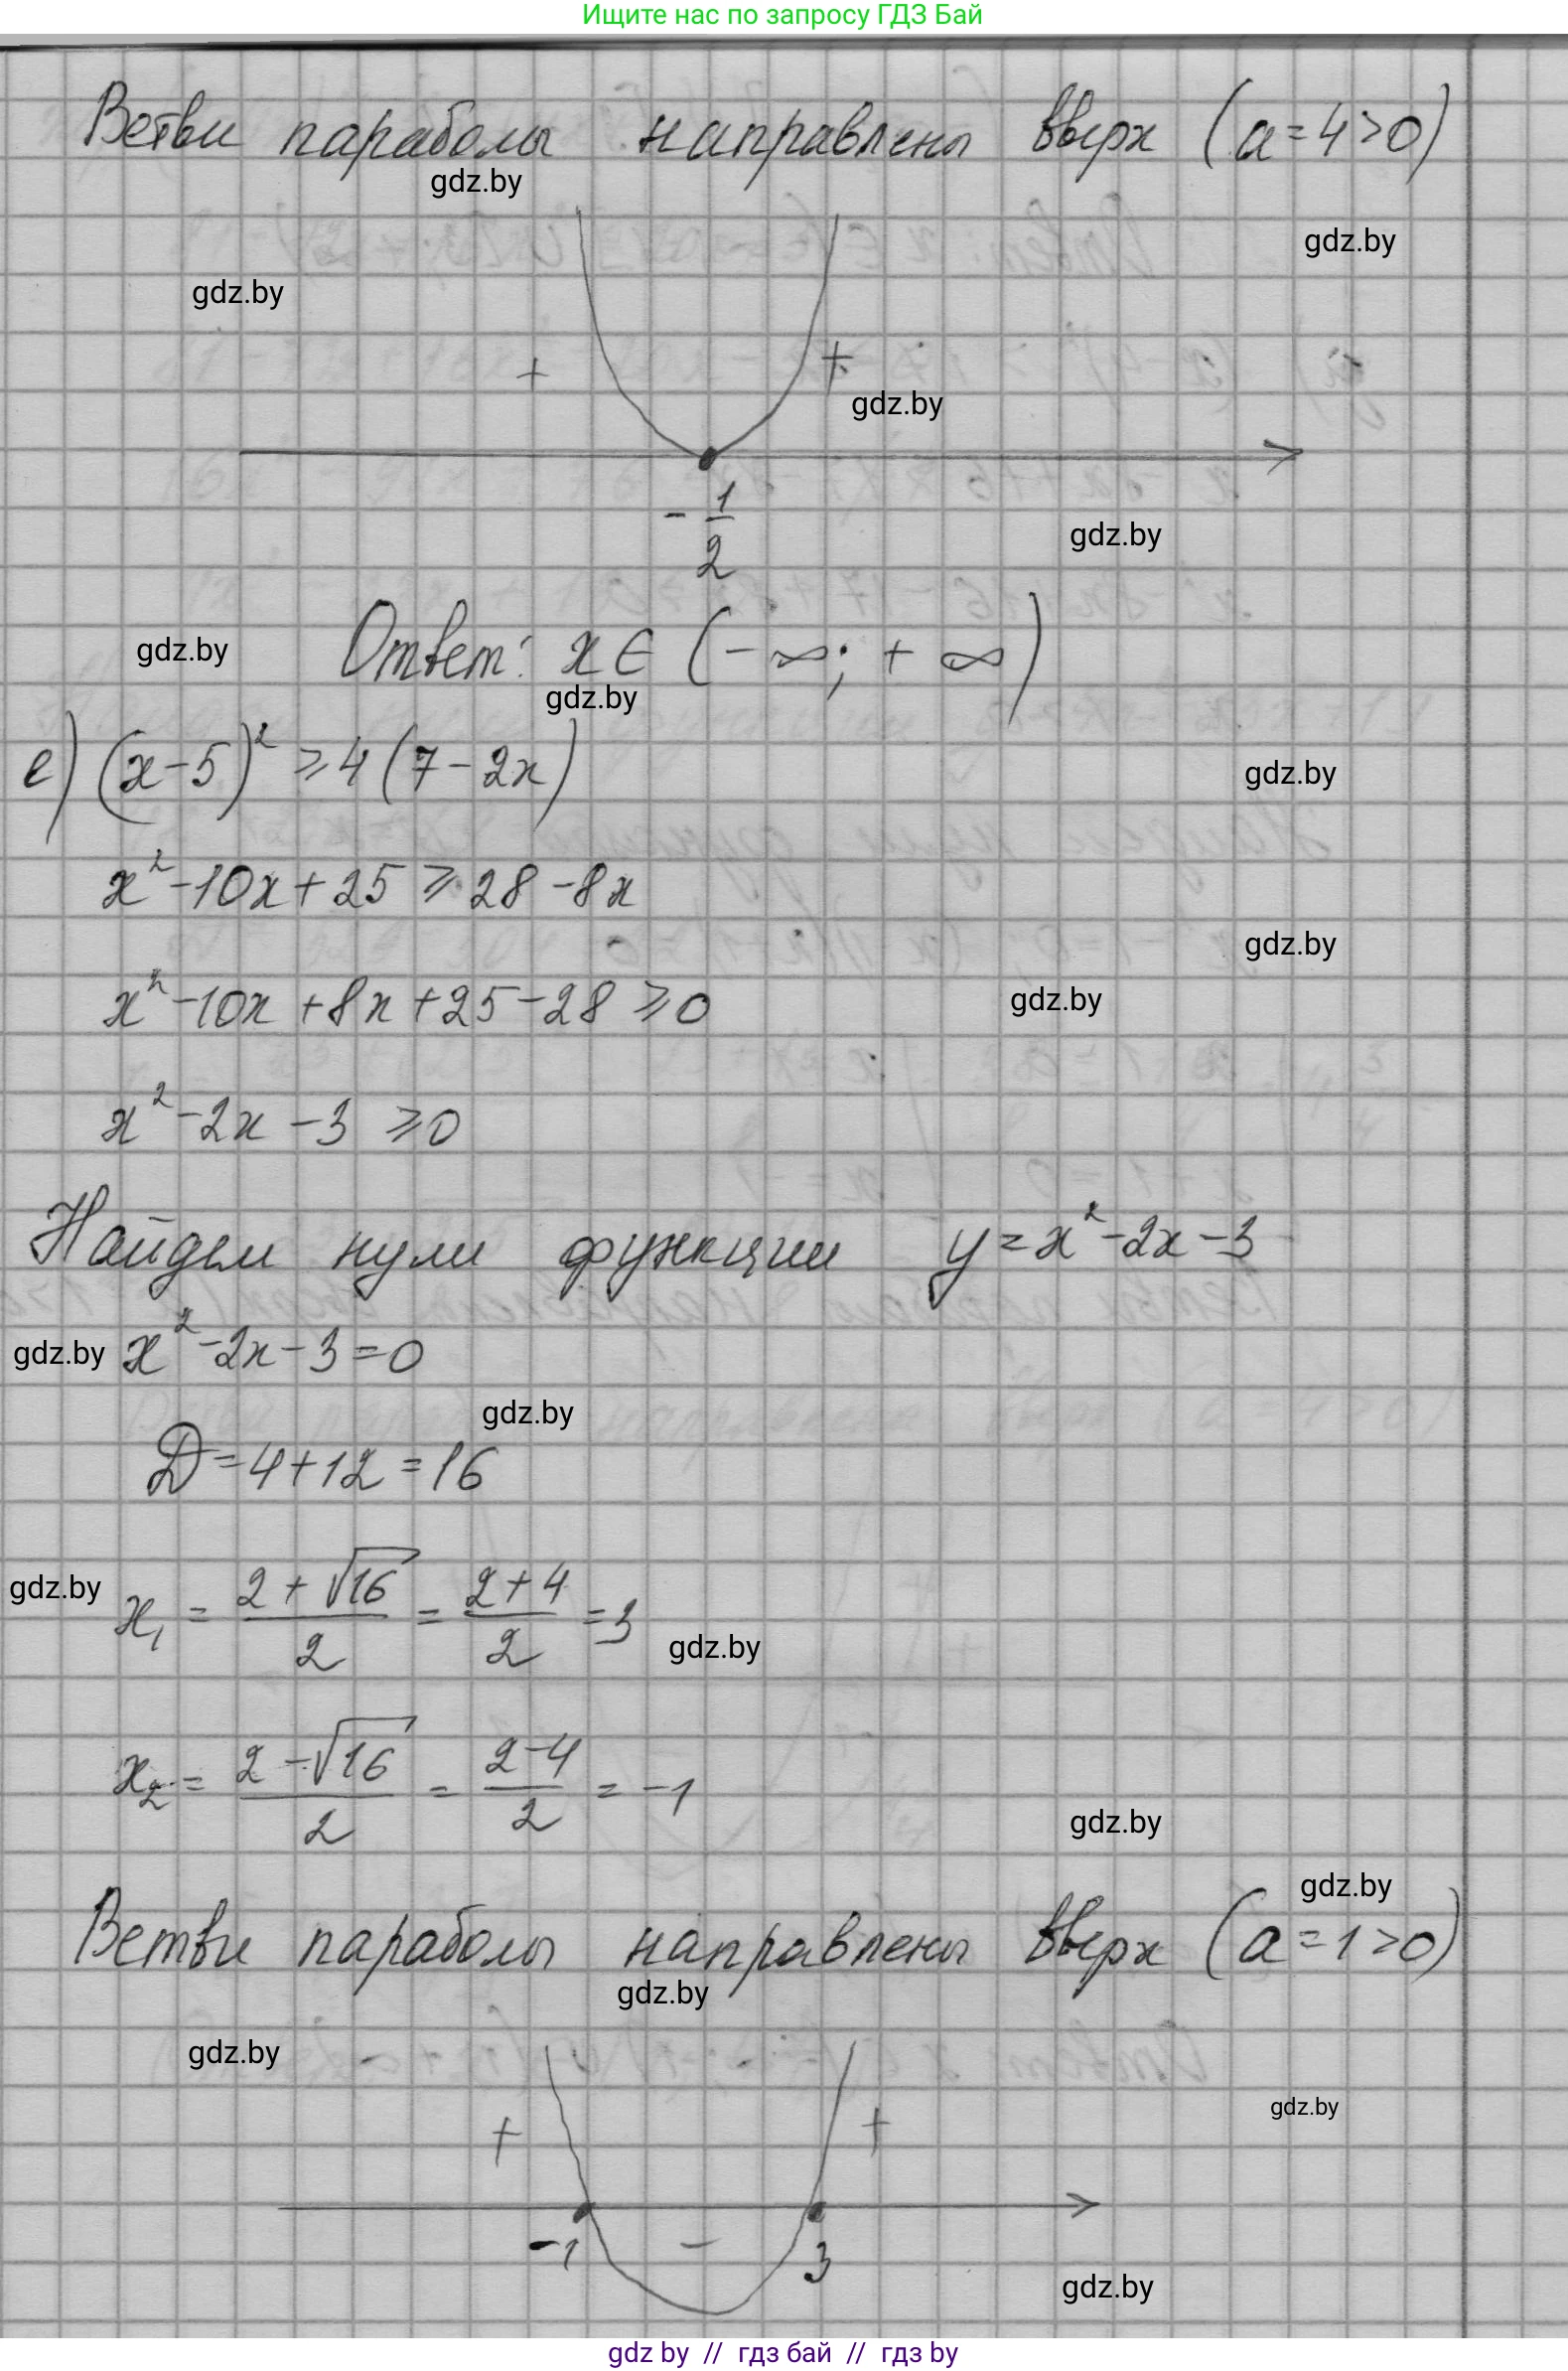 Ищите нас по запросу ГДЗ Бай
Ветви параболы направлены вверх (a = 4 > 0)
gdz.by
gdz.by
gdz.by
+ +
gdz.by
- 1/2
gdz.by
Ответ: x ∈ (- ∞; + ∞)
gdz.by
gdz.by
е) (x - 5)² ⩾ 4 (7 - 2x)
gdz.by
x² - 10x + 25 ⩾ 28 - 8x
gdz.by
x² - 10x + 8x + 25 - 28 ⩾ 0
gdz.by
x² - 2x - 3 ⩾ 0
Найдем нули функции y = x² - 2x - 3
gdz.by
x² - 2x - 3 = 0
gdz.by
D = 4 + 12 = 16
gdz.by
x₁ = (2 + √16)/2 = (2 + 4)/2 = 3
gdz.by
x₂ = (2 - √16)/2 = (2 - 4)/2 = -1
gdz.by
gdz.by
Ветви параболы направлены вверх (a = 1 > 0)
gdz.by
gdz.by
gdz.by
+ +
-1 - 3
gdz.by
gdz by // гдз бай // гдз by